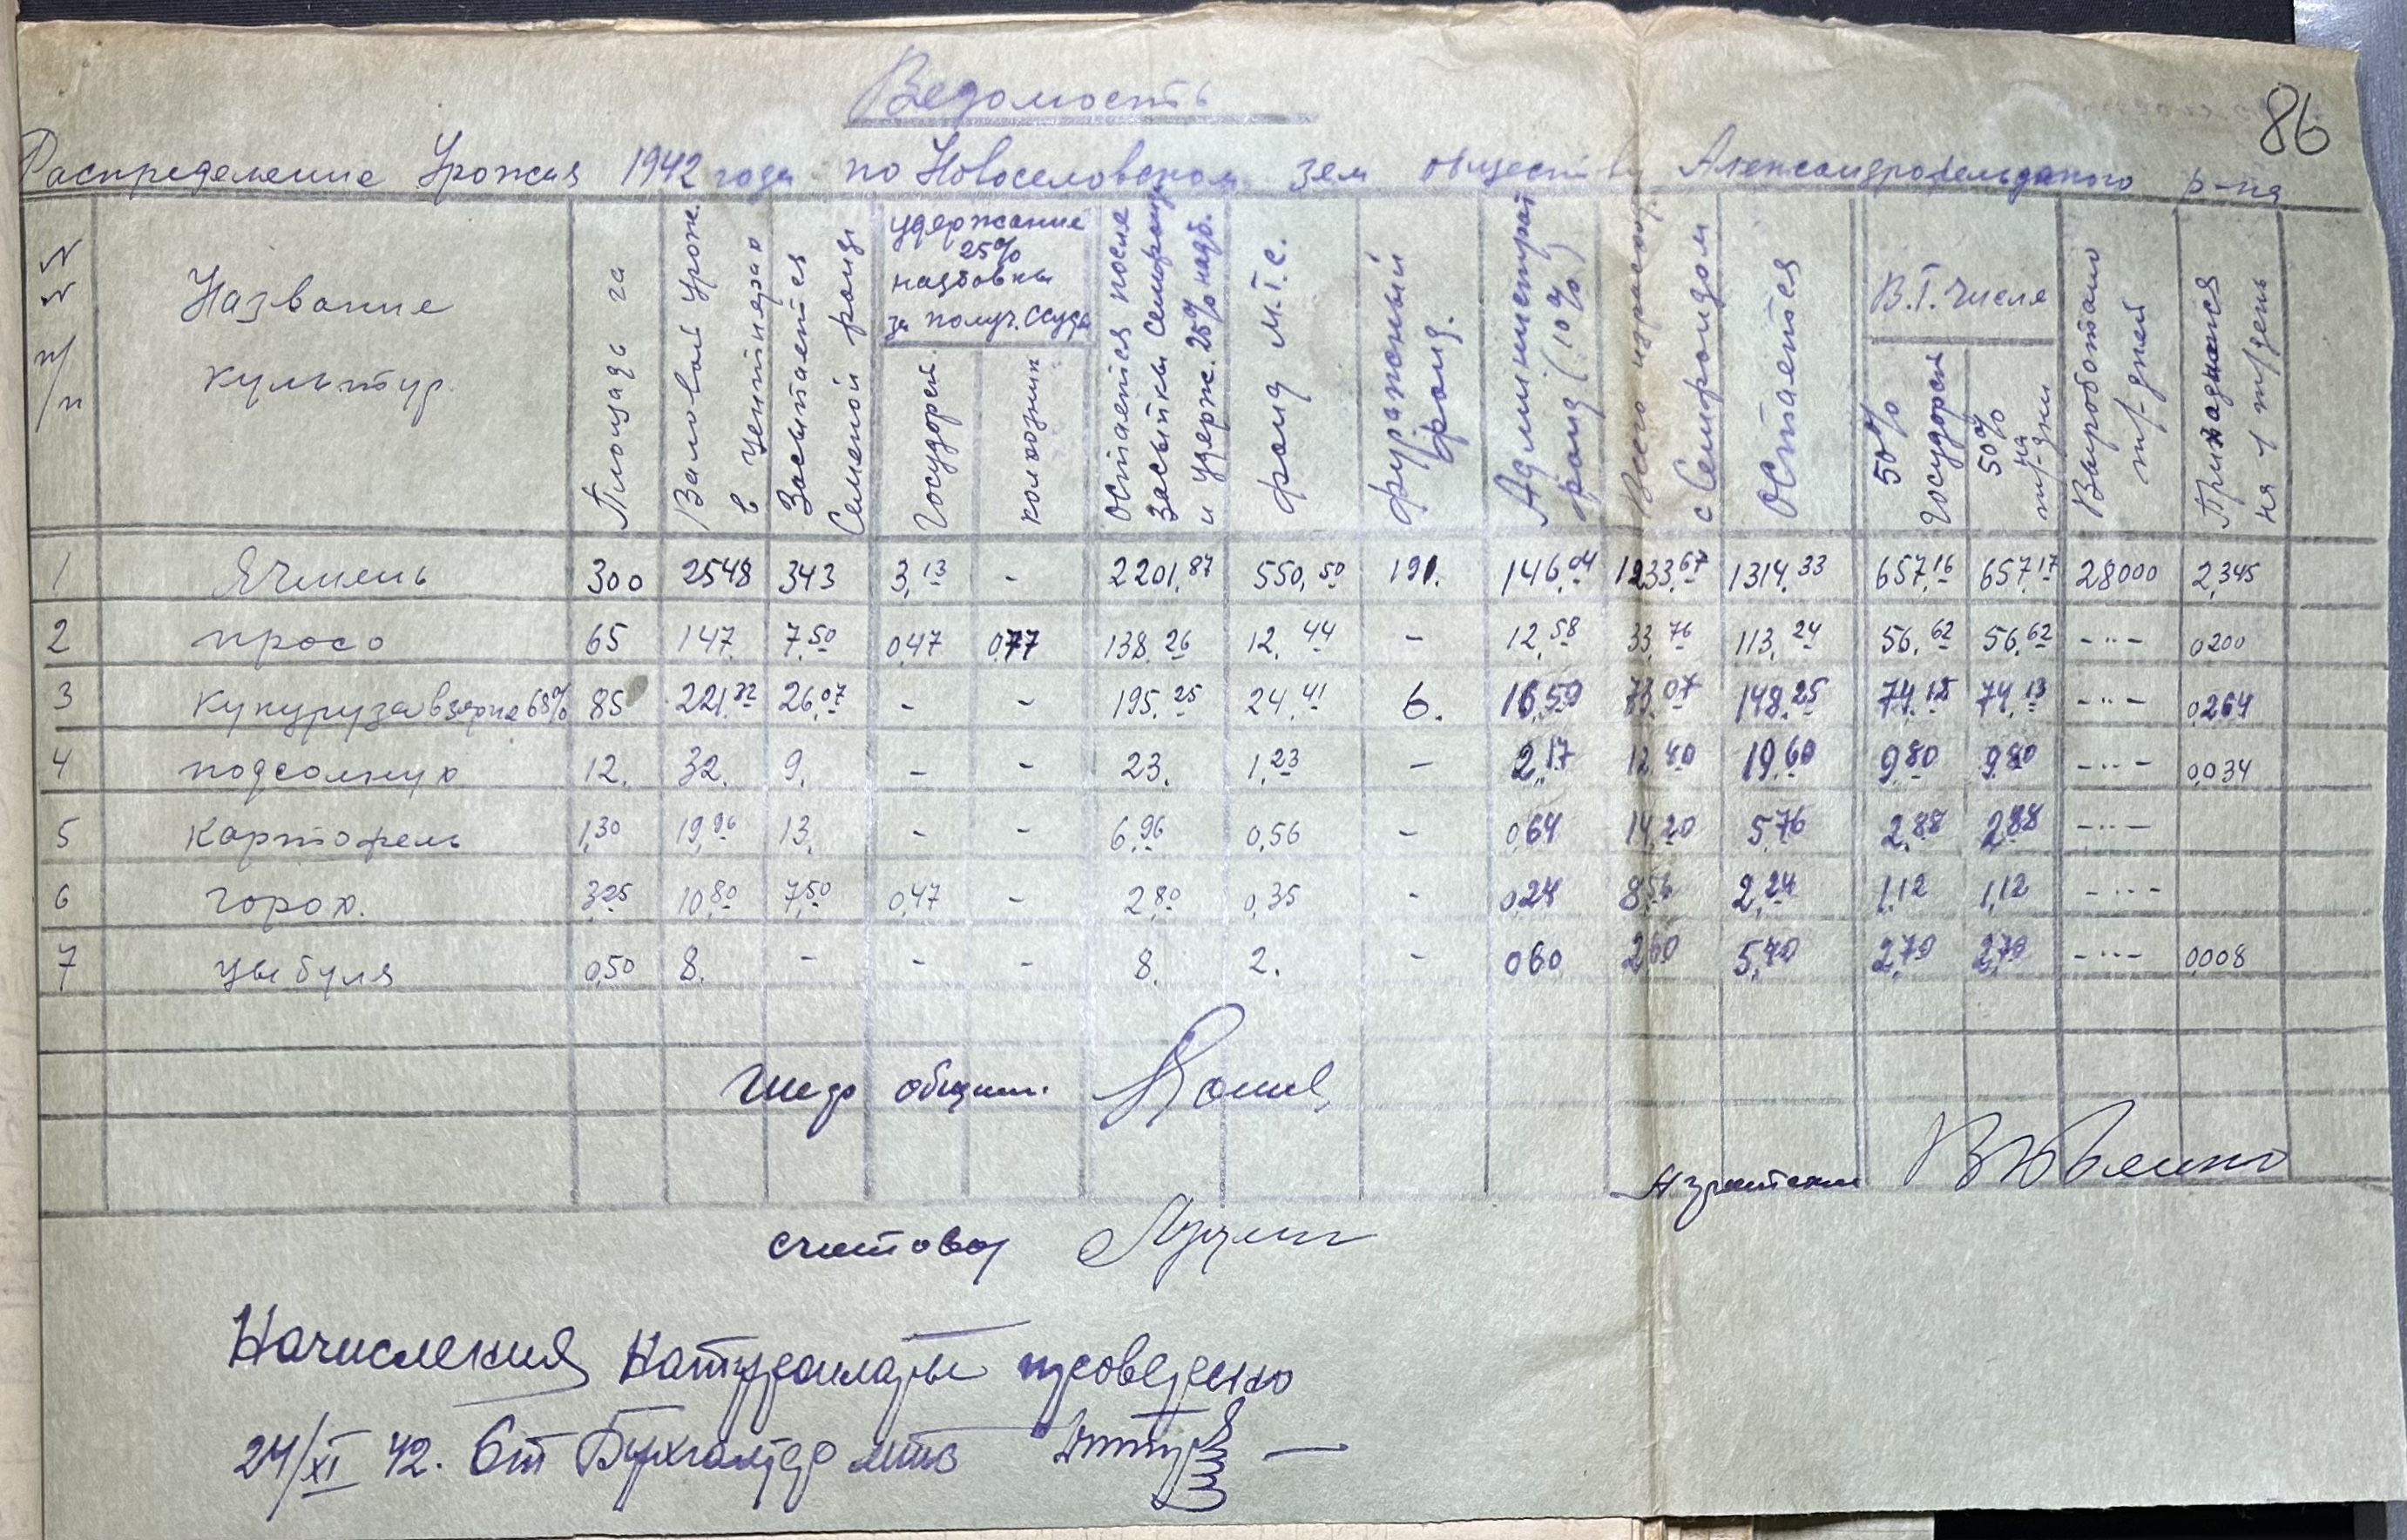 86
Ведомость
Распределение Урожая 1942 года по Новоселовском зем обществу Александрофельдского р-на
N N п/п | Название культур. | Площадь га | Валовой Урож. в центнерах | Засыпается Семеной фонд | удержание 25% надбовки за получ. ссуды: Государст. | колхозник | Остается после засыпки Семфонда и удерж. 25% надб. | фонд М.Т.С. | фуражный фонд. | Администрат фонд (10%) | Всего израсход. с Семфондом | Остается | В.Т. Числе: 50% государст | 50% на тр/дни | Выроботано тр/дней | Приходится на 1 тр/день
1 | Ячмень | 300 | 2548 | 343 | 3,13 | - | 2201,87 | 550,50 | 191. | 146,04 | 1233,67 | 1314,33 | 657,16 | 657,17 | 28000 | 2,345
2 | просо | 65 | 147. | 7,50 | 0,47 | 0,77 | 138,26 | 12,44 | - | 12,58 | 33,76 | 113,24 | 56,62 | 56,62 | -··- | 0,200
3 | Кукуруза в зерне 68% | 85 | 221,32 | 26,07 | - | - | 195,25 | 24,41 | 6. | 16,59 | 73,07 | 148,25 | 74,12 | 74,13 | -··- | 0,264
4 | подсолнух | 12. | 32. | 9. | - | - | 23. | 1,23 | - | 2,17 | 12,40 | 19,60 | 9,80 | 9,80 | -··- | 0,034
5 | Картофель | 1,30 | 19,96 | 13. | - | - | 6,96 | 0,56 | - | 0,64 | 14,20 | 5,76 | 2,88 | 2,88 | -··-
6 | горох. | 3,25 | 10,80 | 7,50 | 0,47 | - | 2,80 | 0,35 | - | 0,24 | 8,56 | 2,24 | 1,12 | 1,12 | -··-
7 | цыбуля | 0,50 | 8. | - | - | - | 8. | 2. | - | 0,60 | 2,60 | 5,40 | 2,70 | 2,70 | -··- | 0,008
общин.
счетовод
Начисления Натуроплаты проведено
24/XI 42. Ст Бухгалтер мтс